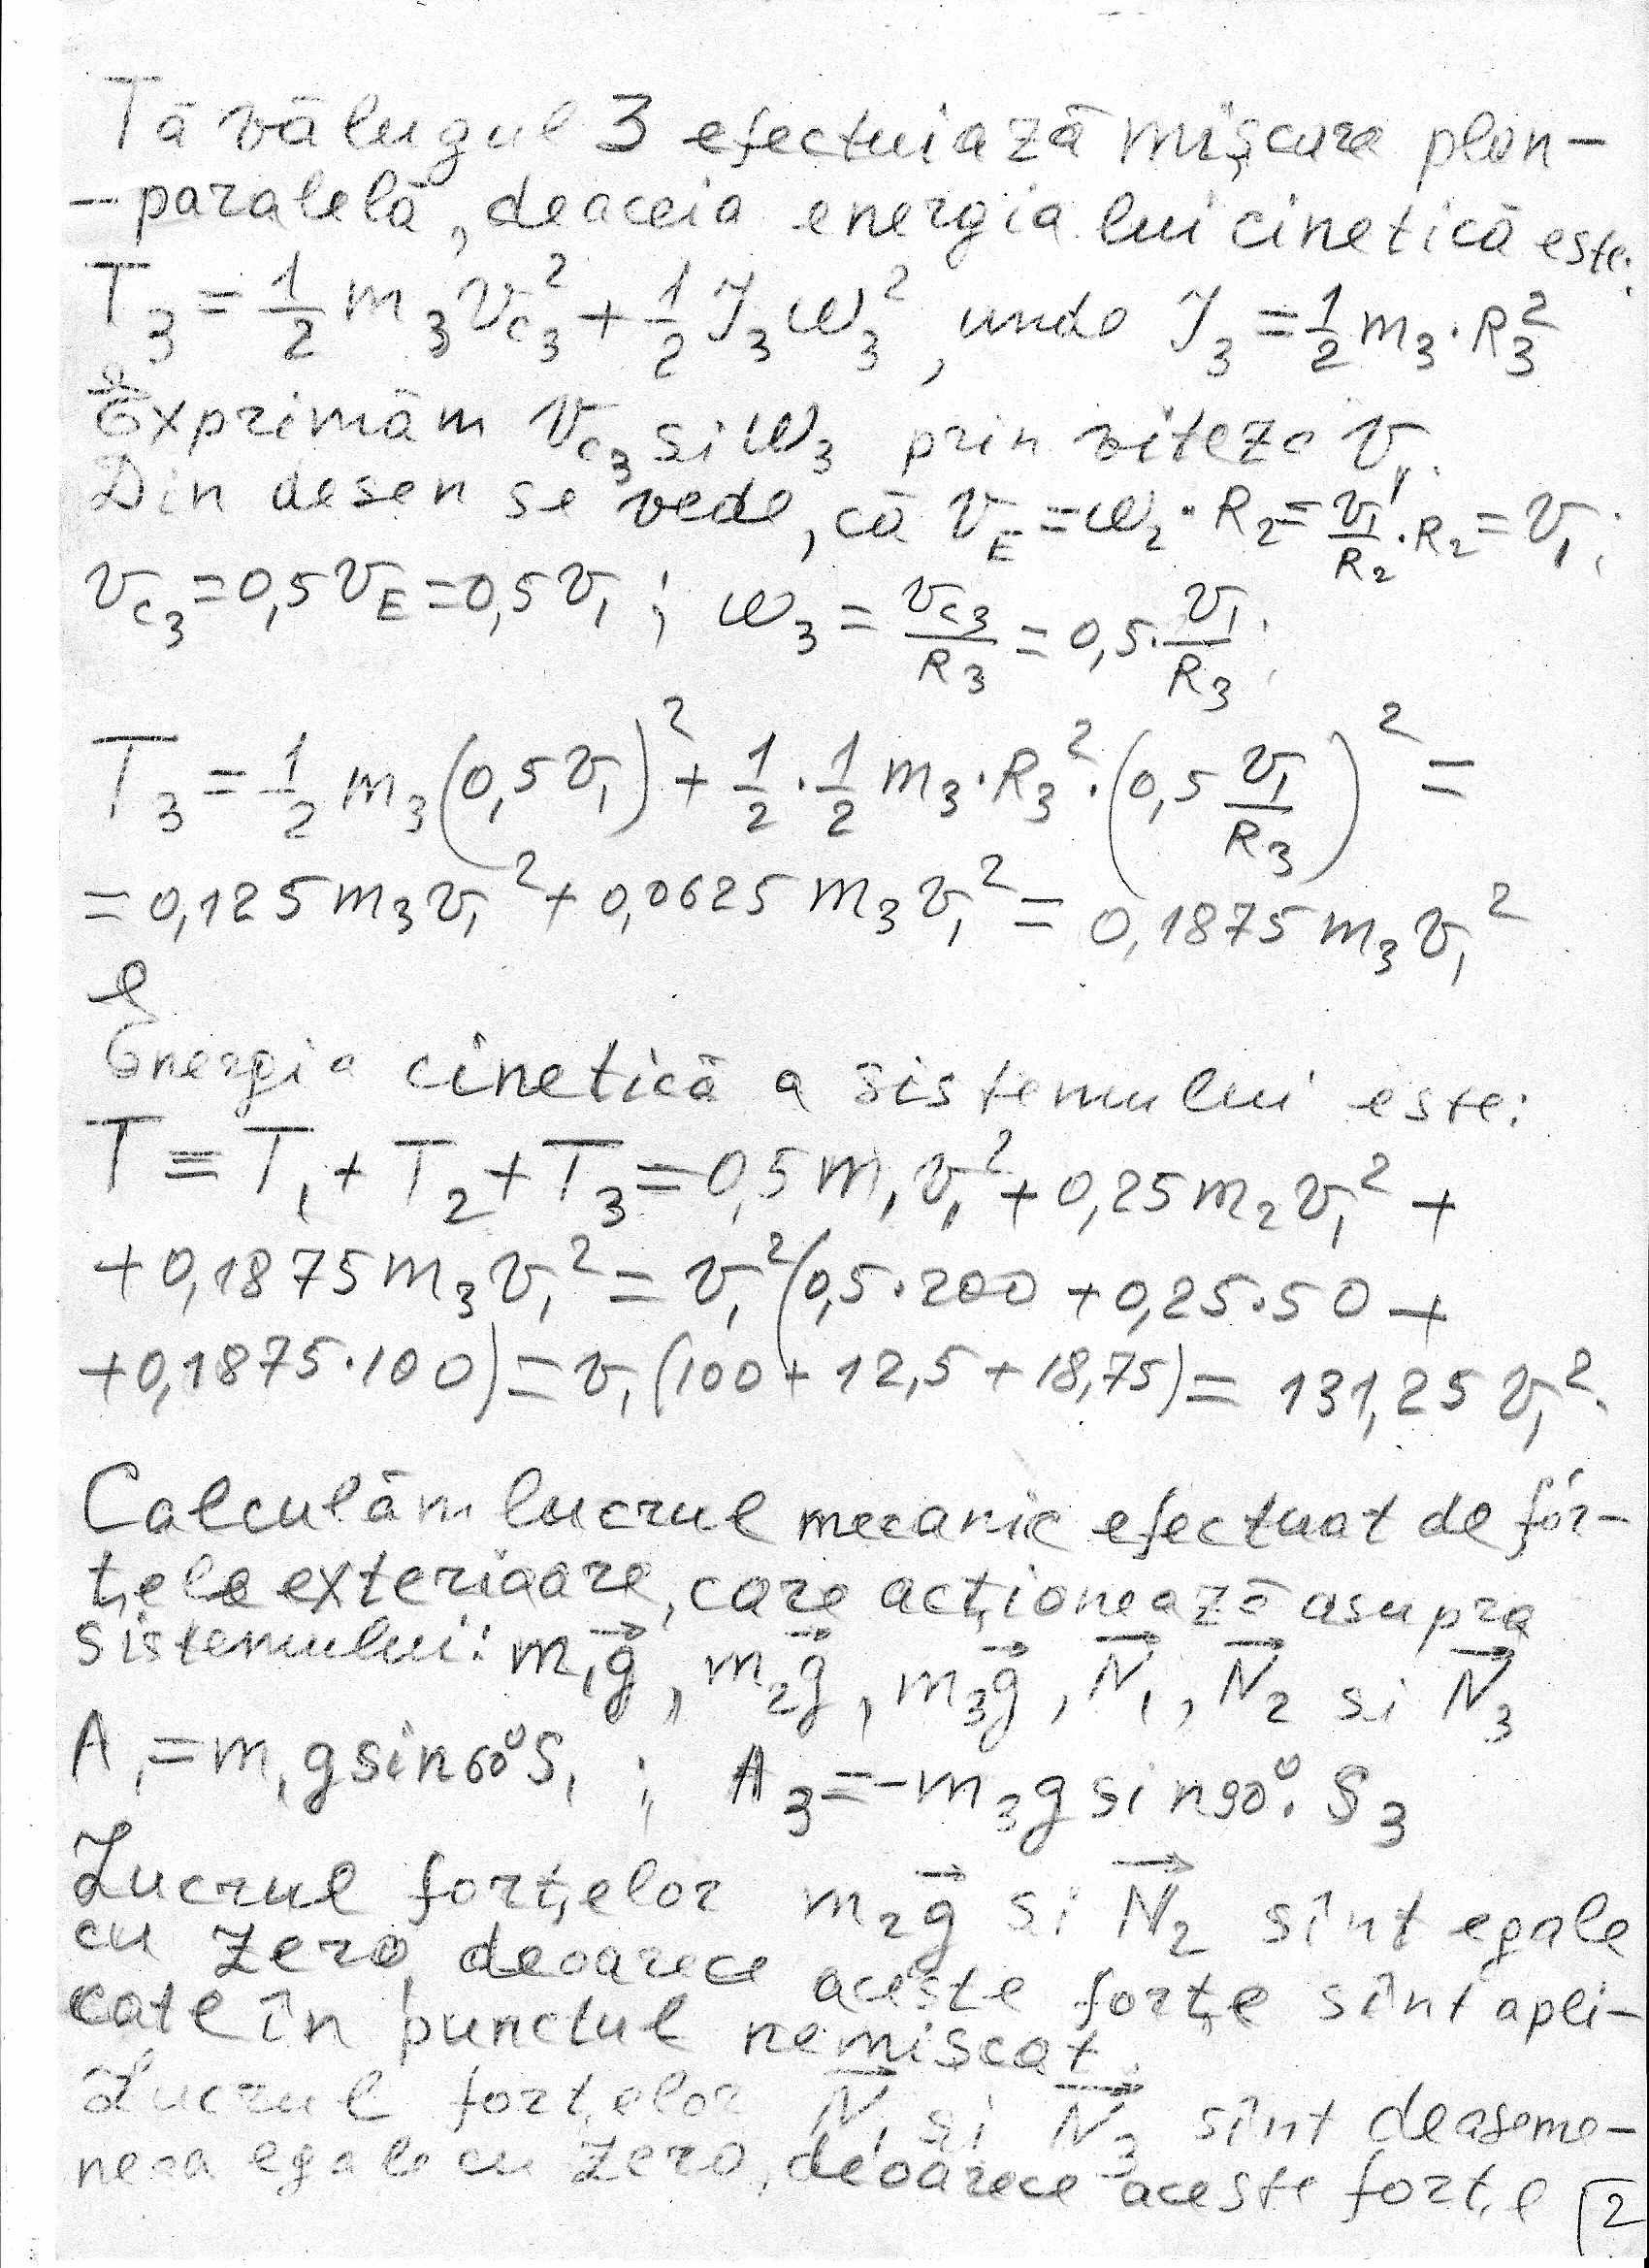 Tăvălugul 3 efectuiază mișcare plan-
-paralelă, deaceia energia lui cinetică este:
T₃ = 1/2 m₃ v_c₃² + 1/2 J₃ ω₃², unde J₃ = 1/2 m₃·R₃²
Exprimăm v_c₃ si ω₃ prin viteza v₁.
Din desen se vede, că v_E = ω₂·R₂ = v₁/R₂·R₂ = v₁;
v_c₃ = 0,5 v_E = 0,5 v₁; ω₃ = v_c₃/R₃ = 0,5·v₁/R₃;
T₃ = 1/2 m₃(0,5 v₁)² + 1/2·1/2 m₃·R₃²·(0,5 v₁/R₃)² =
= 0,125 m₃ v₁² + 0,0625 m₃ v₁² = 0,1875 m₃ v₁²
Energia cinetică a sistemului este:
T = T₁ + T₂ + T₃ = 0,5 m₁ v₁² + 0,25 m₂ v₁² +
+ 0,1875 m₃ v₁² = v₁²(0,5·200 + 0,25·50 +
+ 0,1875·100) = v₁(100 + 12,5 + 18,75) = 131,25 v₁².
Calculăm lucrul mecanic efectuat de for-
țele exterioare, care acționează asupra
sistemului: m₁g⃗, m₂g⃗, m₃g⃗, N⃗₁, N⃗₂ si N⃗₃
A₁ = m₁ g sin 60° S₁; A₃ = -m₃ g sin 90°· S₃
Lucrul forțelor m₂g⃗ si N⃗₂ sînt egale
cu zero, deoarece aceste forțe sînt apli-
cate în punctul nemișcat.
Lucrul forțelor N⃗₁ și N⃗₃ sînt deaseme-
nea egale cu zero, deoarece aceste forțe
2